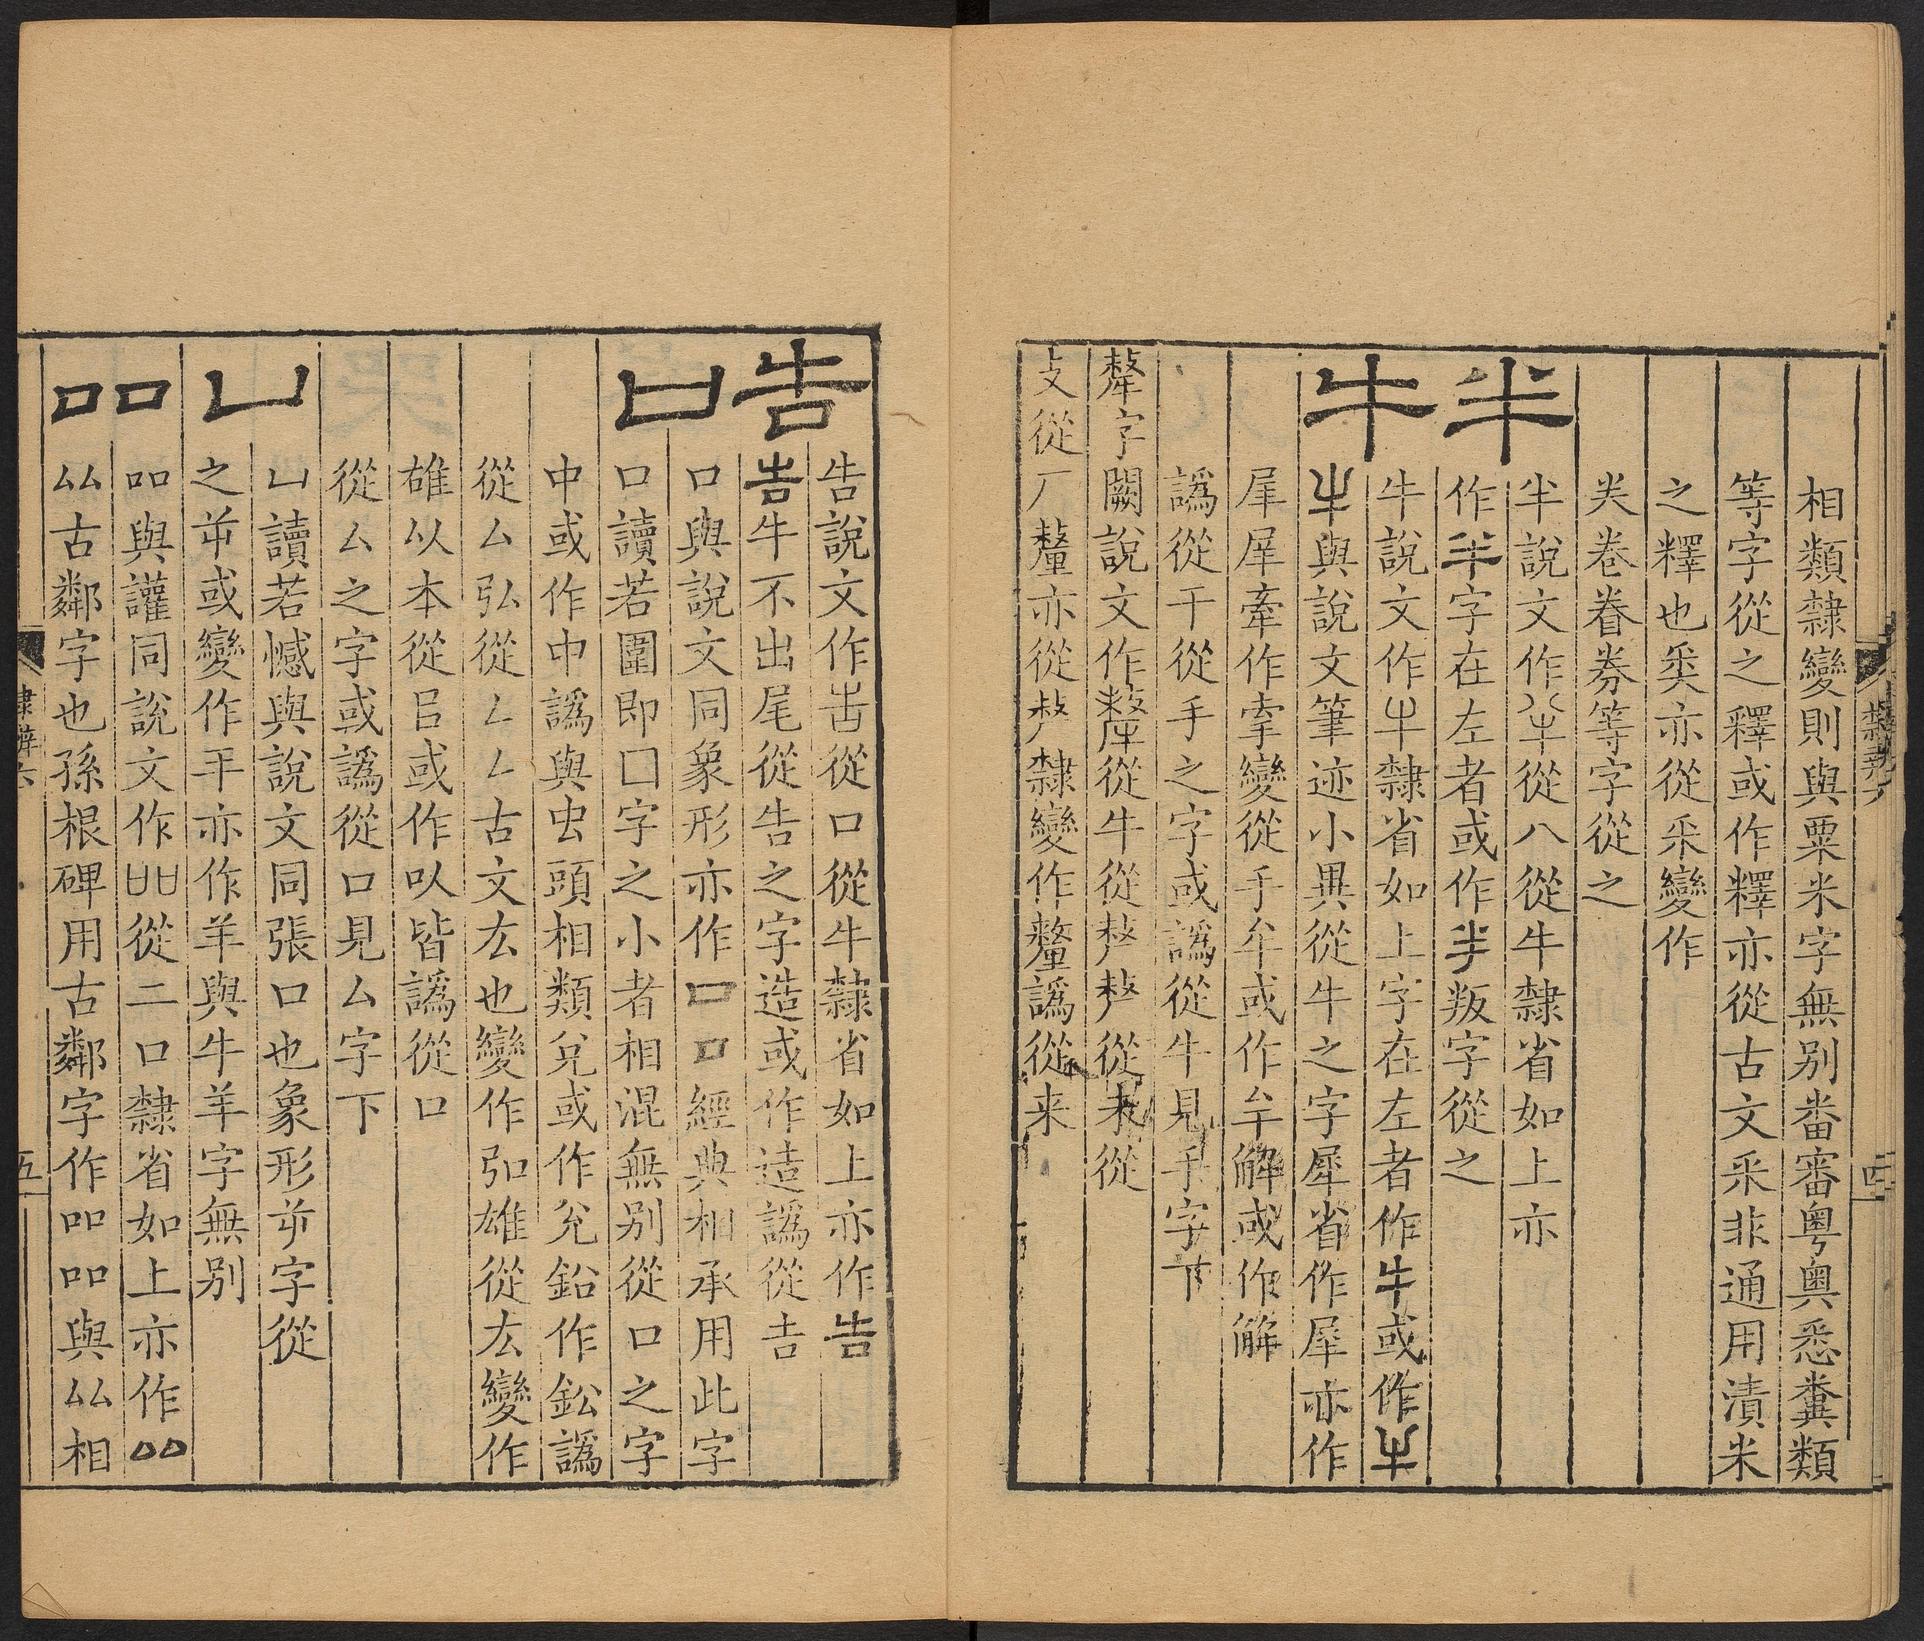 相類隸變則與粟米字無别畨審粤奥悉糞類
等字從之釋或作釋亦從古文釆非通用漬米
之釋也𢍏亦從釆變作
𠔉卷眷劵等字從之
半
半說文作𠦒從八從牛隸省如上亦
作半字在左者或作半叛字從之
牛
牛說文作牛隸省如上字在左者作牛或作牛
牛與說文筆迹小異從牛之字犀省作犀亦作
犀犀牽作㹂變從手牟或作牟解或作觧
譌從干從手之字或譌從牛見手字下
犛字闕說文作犛從牛從𠩺𠩺從未從
攴從厂釐亦從𠩺隸變作釐譌從来
隸辨六
四
告
告說文作告從口從牛隸省如上亦作告
告牛不出尾從告之字造或作造譌從吉
口
口與說文同象形亦作口口經典相承用此字
口讀若圍即囗字之小者相混無别從口之字
中或作中譌與虫頭相類兌或作兊鉛作鈆譌
從厶弘從𠃋𠃋古文厷也變作弘雄從厷變作
雄以本從㠯或作㕥皆譌從口
從厶之字或譌從口見厶字下
凵
凵讀若憾與說文同張口也象形屰字從
之屰或變作干亦作羊與牛羊字無别
吅
吅與讙同說文作吅從二口隸省如上亦作吅
厸古鄰字也孫根碑用古鄰字作吅吅與厸相
隸辨六
五